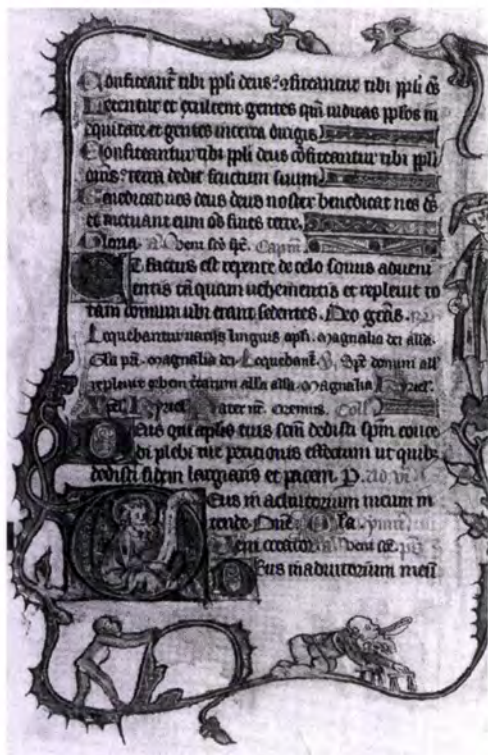 Confiteant tibi ppli deus: ꝯfiteantur tibi ppli õs
Letentur et exultent gentes qm iudicas pplos in
equitate et gentes in terra dirigis
Confiteantur tibi ppli deus ꝯfiteantur tibi ppli
om̃s: terra dedit fructum suum
Benedicat nos deus deus noster benedicat nos ds
et metuant eum om̃s fines terre.
Gloria. a. Veni sc̃e sp̃c. Capitm̃
Et factus est repente de celo sonus adveni
entis tãquam uehementis et repleuit to
tam domum ubi erant sedentes. Deo grãs.
Loquebantur uarijs linguis apli. magnalia dei alla.
Gla pã. magnalia dei Loquebant̃. V. Spc domini all
repleuit orbem terrarum alla alla. magnalia Kyriel.
Kyriel. Pater nr̃. Oremus. Coll
Deus qui aplis tuis scm̃ dedisti spm̃ conce
di plebi tue petitionis effectum ut quibȝ
dedisti fidem largiaris et pacem. P. Ad vi
Deus in adiutorium meum in
tende. Dñe. Gla. ympn
Veni creator a. Veni sc̃e. ps
Deus in adiutorium meũ